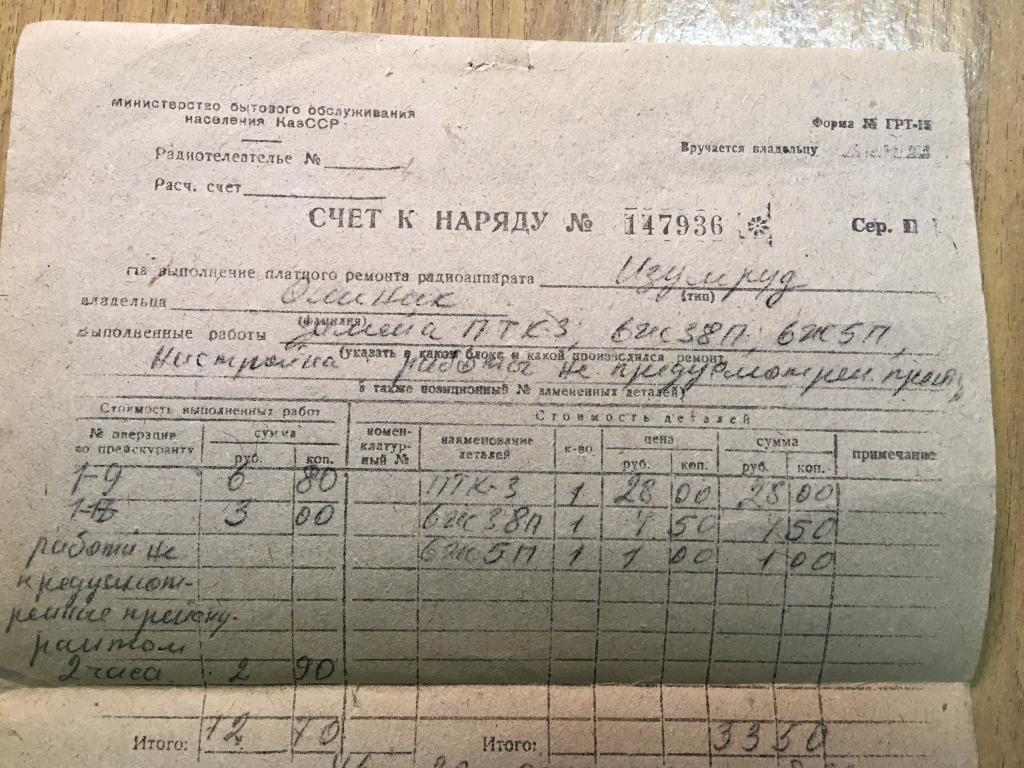 министерство бытового обслуживания
населения КазССР
Форма № ГРТ-
Вручается владельцу
Радиотелеателье №
Расч. счет
СЧЕТ К НАРЯДУ № 147936 Сер.
на выполнение платного ремонта радиоаппарата Изумруд
(тип)
владельца
(фамилия)
выполненные работы замена ПТК3; 6ж38П; 6ж5П,
(указать в каком блоке и какой производился ремонт,
Настройка работы не предусмотрен.
а также позиционный № замененных деталей)
Стоимость выполненных работ Стоимость деталей
№ операции по прейскуранту сумма руб. коп. номенклатурный № наименование деталей к-во цена руб. коп. сумма руб. коп. примечание
1-9 6 80 ПТК-3 1 28 00 28 00
3 00 6ж38П 1 50 50
работы не 6ж5П 1 1 00 1 00
предусмот-
ренные прейску-
рантом
2 часа 2 90
Итого: 12 70 Итого: 33 50